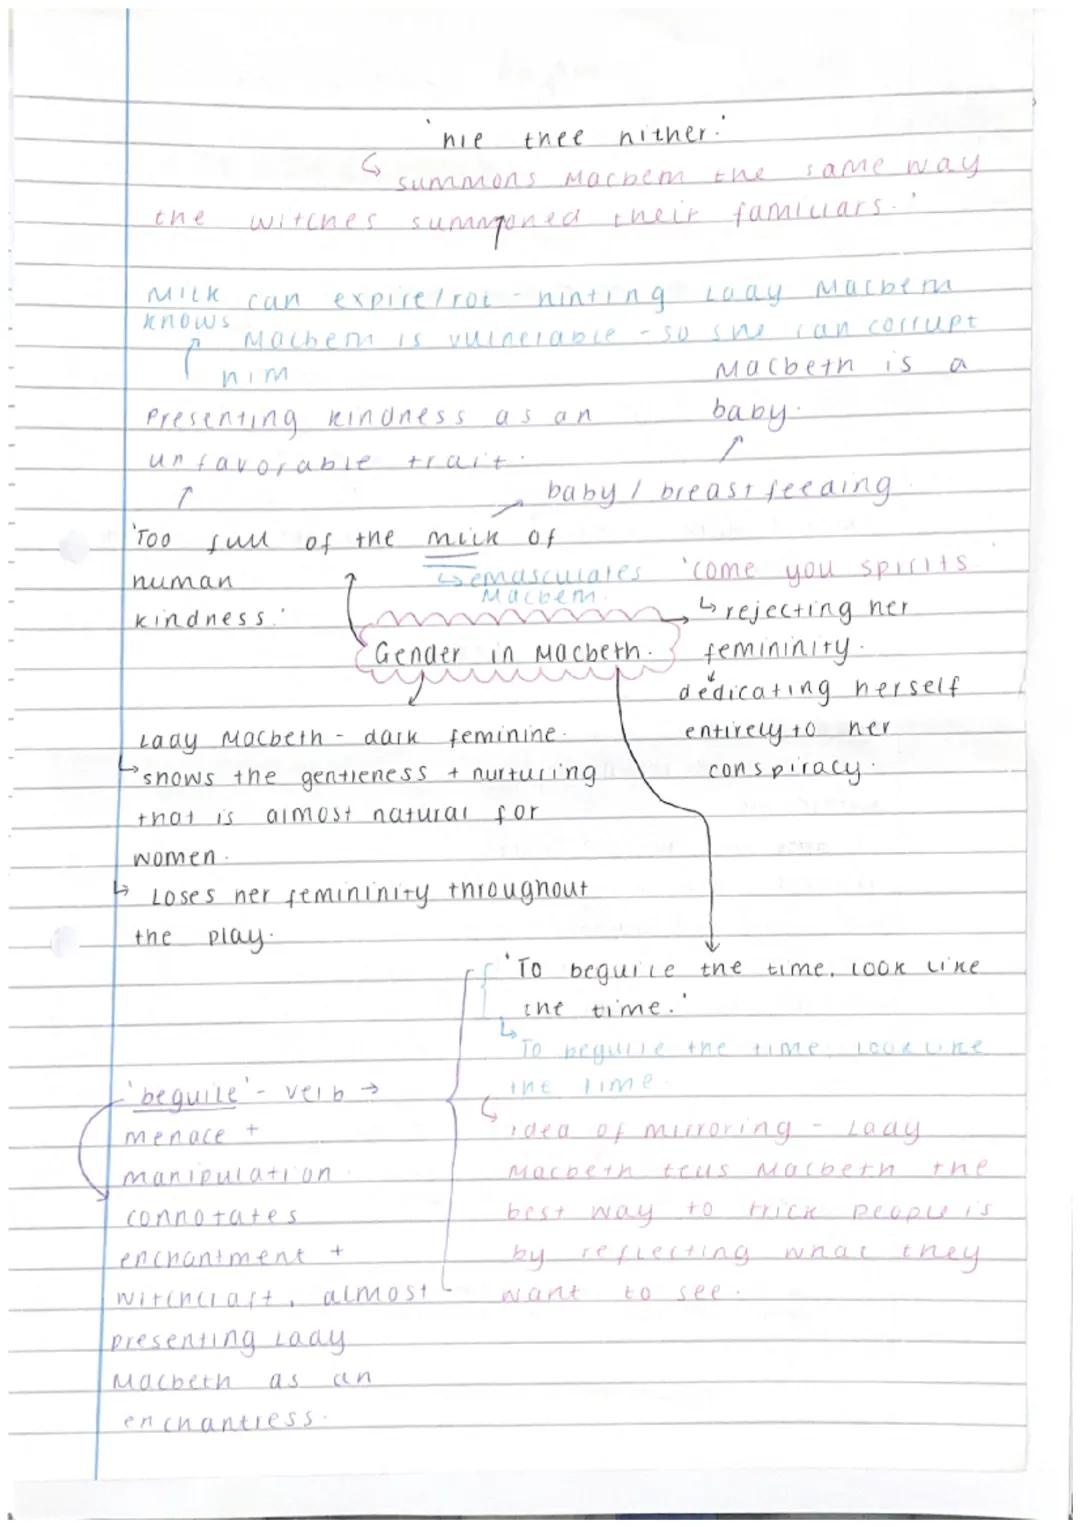 'hie thee hither.'
↳ summons Macbeth the same way
the witches summoned their familiars.'
Milk can expire/rot - hinting Lady Macbeth
knows Macbeth is vulnerable - so she can corrupt
him
Macbeth is a
baby.
Presenting kindness as an
unfavorable trait.
baby / breast feeding
'Too full of the milk of
human
kindness.'
↳ emasculates
Macbeth.
'come you spirits
↳ rejecting her
femininity.
dedicating herself
entirely to her
conspiracy.
Gender in Macbeth.
Lady Macbeth - dark feminine.
↳ shows the gentleness + nurturing
that is almost natural for
women.
↳ Loses her femininity throughout
the play.
'To beguile the time, look like
the time.'
↳ To beguile the time, look like
the time.
↳ idea of mirroring - Lady
Macbeth tells Macbeth the
best way to trick people is
by reflecting what they
want to see.
'beguile' - verb →
menace +
manipulation
connotates
enchantment +
witchcraft, almost
presenting Lady
Macbeth as an
enchantress.